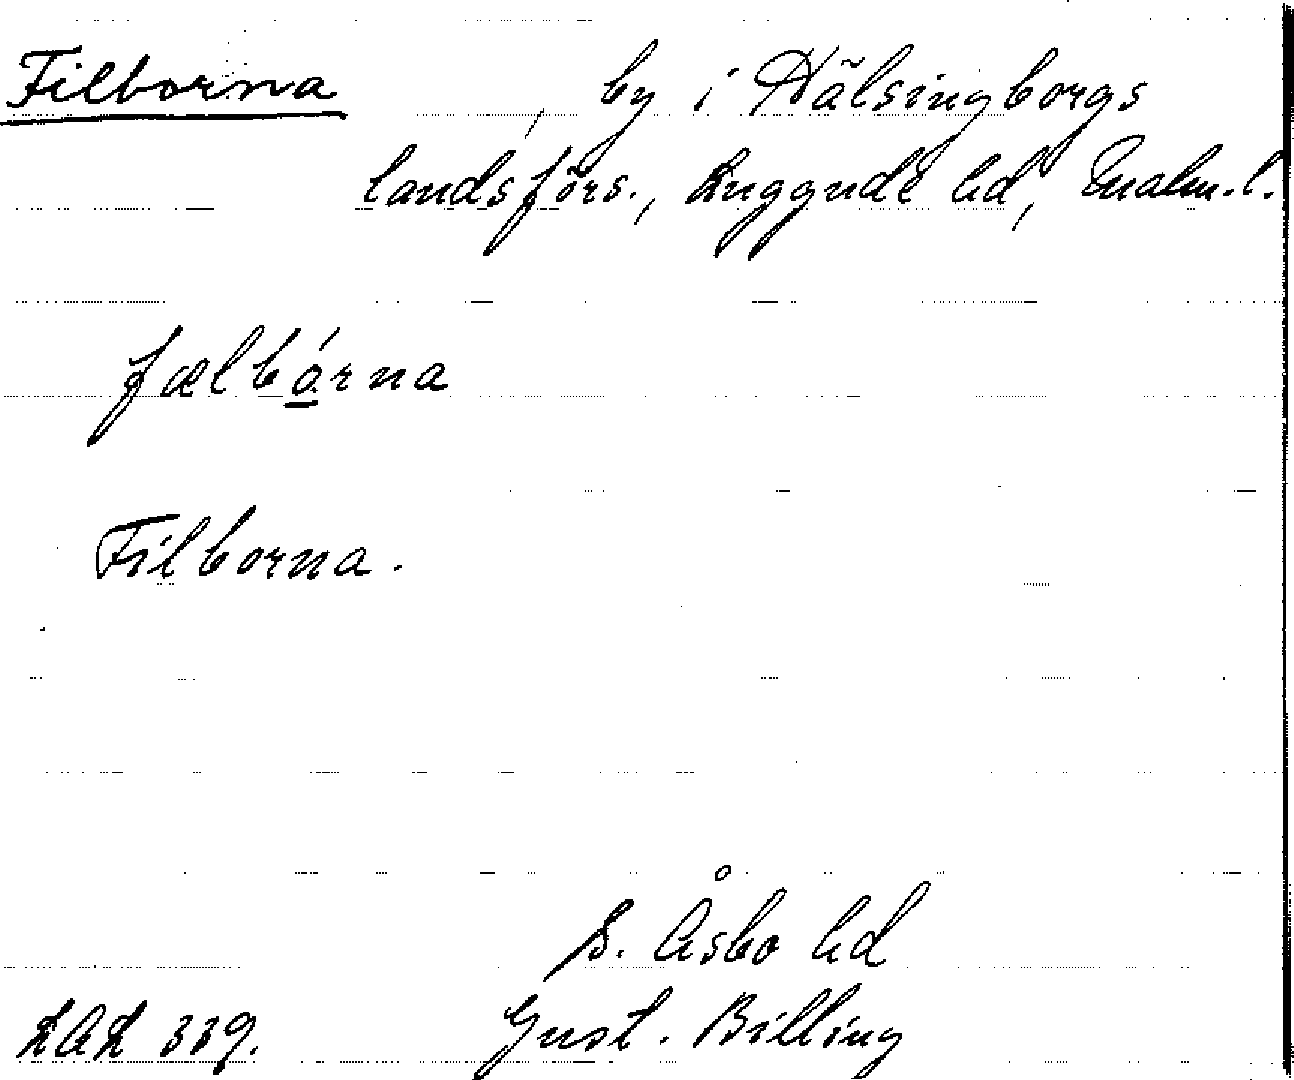 Filborna by i Hälsingborgs
landsförs., Luggude hd, Malm. l.
fælbórna
Filborna.
S. Åsbo hd
LAL 339. Gust. Billing